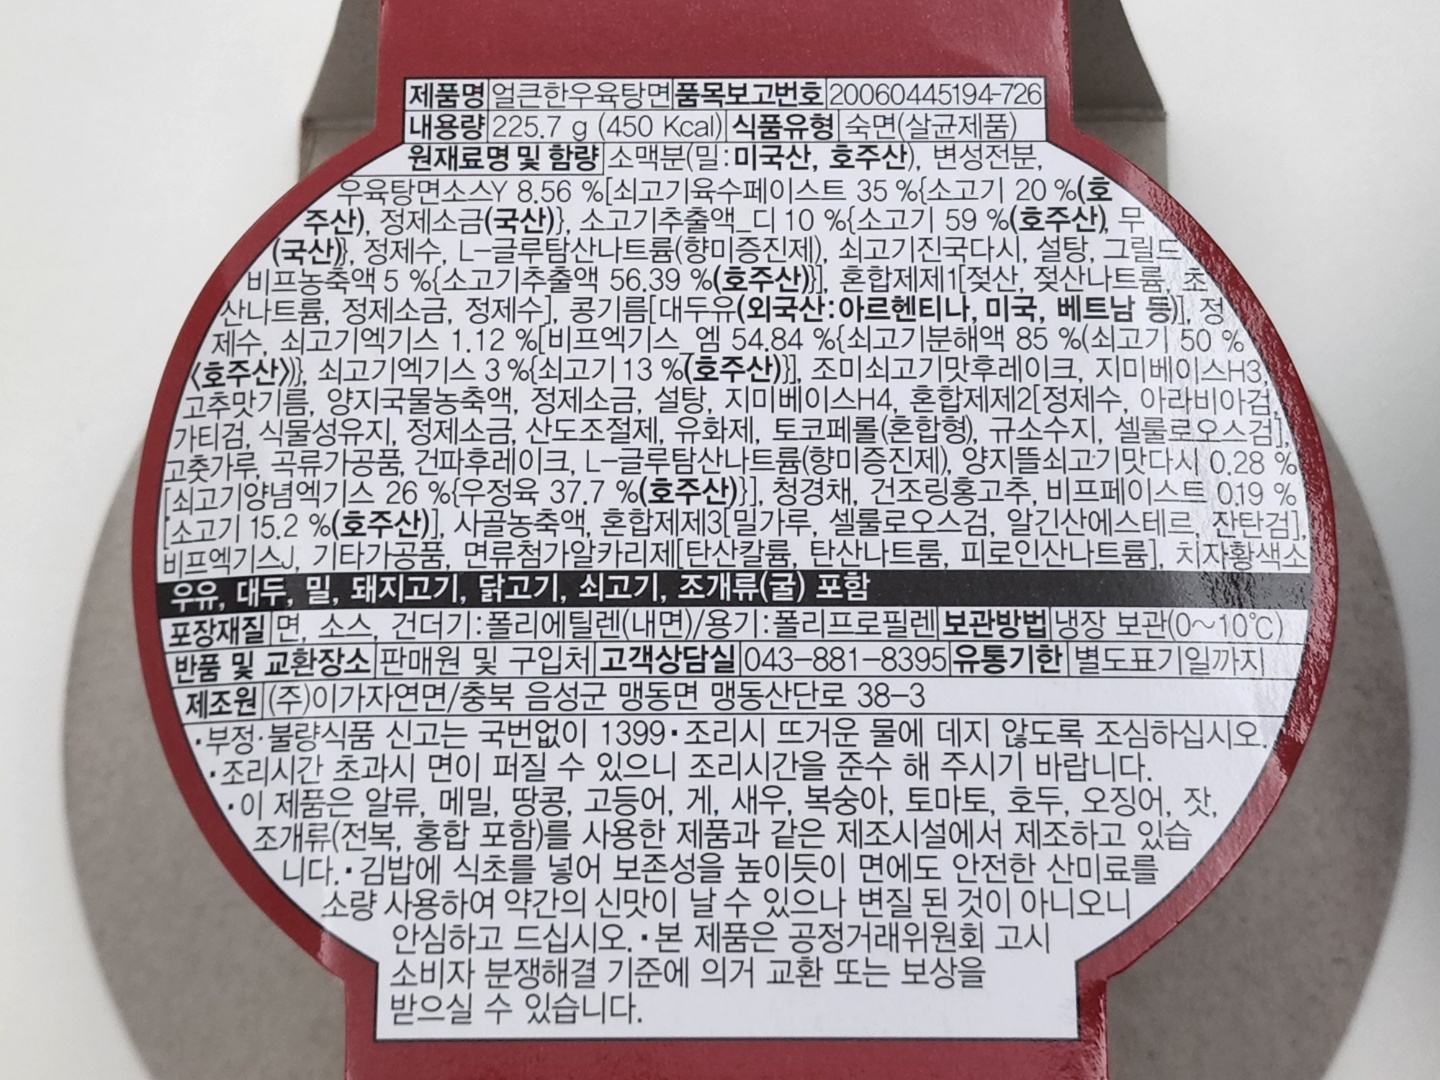 제품명 얼큰한우육탕면 품목보고번호 20060445194-726
내용량 225.7 g (450 Kcal) 식품유형 숙면(살균제품)
원재료명 및 함량 소맥분(밀:미국산, 호주산), 변성전분,
우육탕면소스Y 8.56 %[쇠고기육수페이스트 35 %{소고기 20 %(호
주산), 정제소금(국산)}, 소고기추출액_디 10 %{소고기 59 %(호주산), 무
(국산)}, 정제수, L-글루탐산나트륨(향미증진제), 쇠고기진국다시, 설탕, 그릴드
비프농축액 5 %{소고기추출액 56.39 %(호주산)}], 혼합제제1[젖산, 젖산나트륨, 초
산나트륨, 정제소금, 정제수], 콩기름[대두유(외국산:아르헨티나, 미국, 베트남 등)], 정
제수, 쇠고기엑기스 1.12 %[비프엑기스_엠 54.84 %{소고기분해액 85 %(쇠고기 50 %
〈호주산〉)}, 쇠고기엑기스 3 %{쇠고기 13 %(호주산)}], 조미쇠고기맛후레이크, 지미베이스H3,
고추맛기름, 양지국물농축액, 정제소금, 설탕, 지미베이스H4, 혼합제제2[정제수, 아라비아검,
가티검, 식물성유지, 정제소금, 산도조절제, 유화제, 토코페롤(혼합형), 규소수지, 셀룰로오스검],
고춧가루, 곡류가공품, 건파후레이크, L-글루탐산나트륨(향미증진제), 양지뜰쇠고기맛다시 0.28 %
[쇠고기양념엑기스 26 %{우정육 37.7 %(호주산)}], 청경채, 건조링홍고추, 비프페이스트 0.19 %
[소고기 15.2 %(호주산)], 사골농축액, 혼합제제3[밀가루, 셀룰로오스검, 알긴산에스테르, 잔탄검],
비프엑기스J, 기타가공품, 면류첨가알카리제[탄산칼륨, 탄산나트룸, 피로인산나트륨], 치자황색소
우유, 대두, 밀, 돼지고기, 닭고기, 쇠고기, 조개류(굴) 포함
포장재질 면, 소스, 건더기:폴리에틸렌(내면)/용기:폴리프로필렌 보관방법 냉장 보관(0~10℃)
반품 및 교환장소 판매원 및 구입처 고객상담실 043-881-8395 유통기한 별도표기일까지
제조원 (주)이가자연면/충북 음성군 맹동면 맹동산단로 38-3
·부정·불량식품 신고는 국번없이 1399·조리시 뜨거운 물에 데지 않도록 조심하십시오.
·조리시간 초과시 면이 퍼질 수 있으니 조리시간을 준수 해 주시기 바랍니다.
·이 제품은 알류, 메밀, 땅콩, 고등어, 게, 새우, 복숭아, 토마토, 호두, 오징어, 잣,
조개류(전복, 홍합 포함)를 사용한 제품과 같은 제조시설에서 제조하고 있습
니다.·김밥에 식초를 넣어 보존성을 높이듯이 면에도 안전한 산미료를
소량 사용하여 약간의 신맛이 날 수 있으나 변질 된 것이 아니오니
안심하고 드십시오.·본 제품은 공정거래위원회 고시
소비자 분쟁해결 기준에 의거 교환 또는 보상을
받으실 수 있습니다.